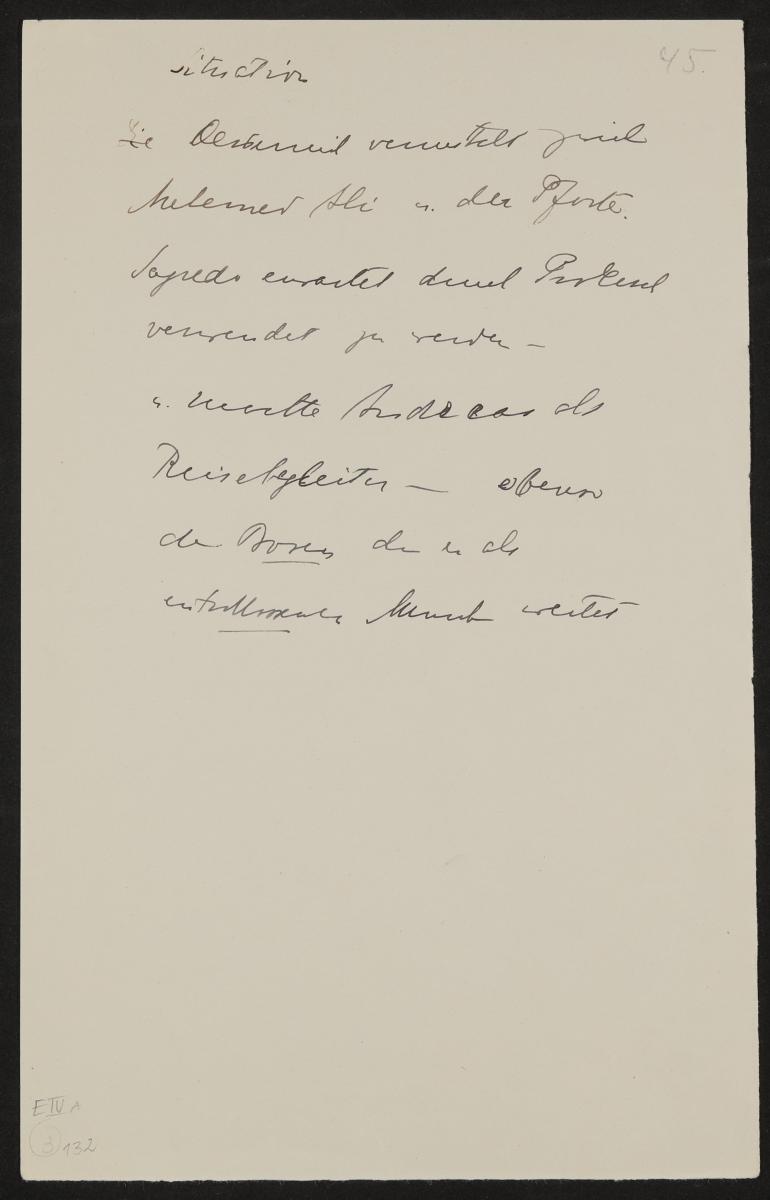 Situation
45.
Oesterreich vermittelt zwischen
Mehemed Ali u. der Pforte.
Sagredo erwartet durch Prokesch
verwendet zu werden –
u. moechte Andreas als
Reisebegleiter – ebenso
den Boxer, den er als
entschlossenen Mensch wertet
E IV A
3 132